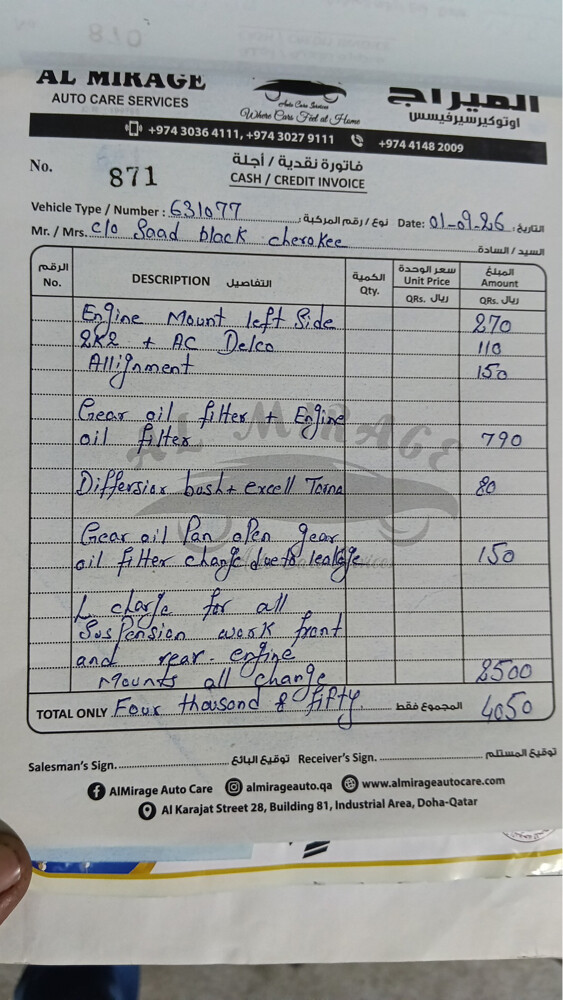 870
AL MIRAGE
AUTO CARE SERVICES
Auto Care Services
Where Cars Feel at Home
الميراج
اوتوكيرسيرفيسس
+974 3036 4111, +974 3027 9111
+974 4148 2009
No.
871
فاتورة نقدية / أجلة
CASH / CREDIT INVOICE
Vehicle Type / Number : 631077 نوع / رقم المركبة : Date: 01-09-26 التاريخ :
Mr. / Mrs. c/o Saad black cherokee السيد / السادة
الرقم No. DESCRIPTION التفاصيل الكمية Qty. سعر الوحدة Unit Price المبلغ Amount
QRs. ريال QRs. ريال
Engine Mount left Side 270
2K2 + AC Delco 110
Allignment 150
Gear oil filter + Engine
oil filter 790
AL MIRAGE
Differsiar bush + excell 80
Gear oil Pan open gear
oil filter change due to leakage 150
L charge for all
Suspension work front
and rear engine
Mounts all change 2500
TOTAL ONLY Four thousand & fifty. المجموع فقط 4050
Salesman's Sign. توقيع البائع Receiver's Sign. توقيع المستلم
AlMirage Auto Care almirageauto.qa www.almirageautocare.com
Al Karajat Street 28, Building 81, Industrial Area, Doha-Qatar